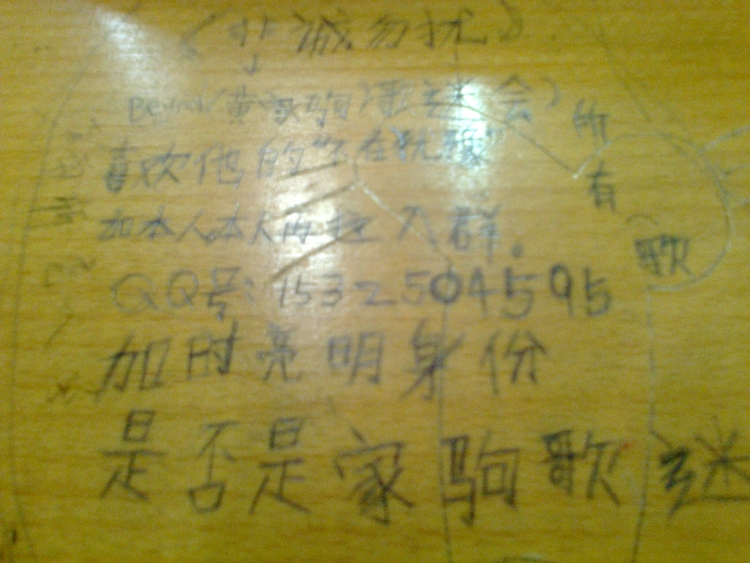 (非诚勿扰)
Beyond(黄家驹)歌迷会)
喜欢他的"不在犹豫"
所有(歌
加本人,本人再拉入群。
QQ号:1532504595
加时亮明身份
是否是家驹歌迷